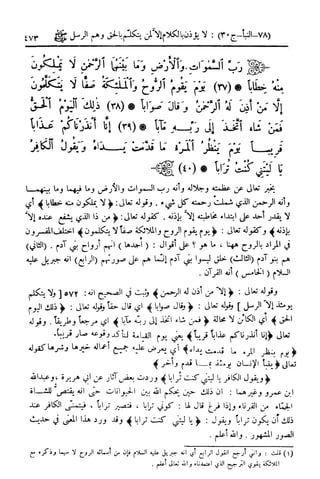 (٧٨–النبأ–ج ٣٠) : لا يؤذن بالكلام إلا لمن يتكلم بالحق وهم الرسل ﷺ ٤٧٣
رَبِّ السَّمَوَاتِ وَالْأَرْضِ وَمَا بَيْنَهُمَا الرَّحْمَنِ لَا يَمْلِكُونَ
مِنْهُ خِطَابًا * (٣٧) يَوْمَ يَقُومُ الرُّوحُ وَالْمَلَائِكَةُ صَفًّا لَا يَتَكَلَّمُونَ
إِلَّا مَنْ أَذِنَ لَهُ الرَّحْمَنُ وَقَالَ صَوَابًا * (٣٨) ذَلِكَ الْيَوْمُ الْحَقُّ
فَمَنْ شَاءَ اتَّخَذَ إِلَى رَبِّهِ مَآبًا * (٣٩) إِنَّا أَنْذَرْنَاكُمْ عَذَابًا
قَرِيبًا يَوْمَ يَنْظُرُ الْمَرْءُ مَا قَدَّمَتْ يَدَاهُ وَيَقُولُ الْكَافِرُ
يَا لَيْتَنِي كُنْتُ تُرَابًا * (٤٠)
يخبر تعالى عن عظمته وجلاله وأنه رب السموات والأرض وما فيهما وما بينهما
وأنه الرحمن الذي شملت رحمته كل شيء . وقوله تعالى : ﴿ لا يملكون منه خطاباً ﴾ أي
لا يقدر أحد على ابتداء مخاطبته إلا بإذنه . كقوله تعالى : ﴿ من ذا الذي يشفع عنده إلا
بإذنه ﴾ وكقوله تعالى : ﴿ يوم يقوم الروح والملائكة صفاً لا يتكلمون ﴾ اختلف المفسرون
في المراد بالروح ههنا ، ما هو ؟ على أقوال : ( أحدها ) أنهم أرواح بني آدم . (الثاني)
هم بنو آدم (الثالث) خلق ليسوا بني آدم إنما هم على صورتهم (الرابع) انه جبريل عليه
السلام (الخامس) أنه القرآن .
وقوله تعالى : ﴿ إلا من أذن له الرحمن ﴾ وثبت في الصحيح انه : ٥٧٢ [ ولا يتكلم
يومئذ إلا الرسل ] وقوله تعالى : ﴿ وقال صوابا ﴾ أي قال حقاً وقوله تعالى : ﴿ ذلك اليوم
الحق ﴾ أي الكائن لا محالة ﴿ فمن شاء اتخذ إلى ربه مآبا ﴾ أي مرجعاً وطريقاً . وقوله
تعالى ﴿ إنا أنذرناكم عذاباً قريباً ﴾ يعني يوم القيامة لتأكد وقوعه صار قريباً .
﴿ يوم ينظر المرء ما قدمت يداه ﴾ أي يعرض عليه جميع أعماله خيرها وشرها كقوله
تعالى ﴿ ينبأ الإنسان يومئذ بما قدم وأخر ﴾
﴿ ويقول الكافر يا ليتني كنت تراباً ﴾ وردت بعض آثار عن ابي هريرة ، وعبدالله
ابن عمرو وغيرهما : ان ذلك حين يحكم الله بين الحيوانات حتى انه يقتص للشاة
الجماء من القرناء وإذا فرغ قال لها : كوني ترابا ، فتصير تراباً ، فيتمنى الكافر عند
ذلك أن يكون تراباً ويقول : ﴿ يا ليتني كنت تراباً ﴾ وقد ورد هذا المعنى في حديث
الصور المشهور . والله أعلم .
(١) قلت : واني أرجح القول الرابع أي انه جبريل عليه السلام فإن من أسمائه الروح لا سيما وذكره مع
الملائكة يقوي الترجيح الذي اعتمدناه والله تعالى أعلم .